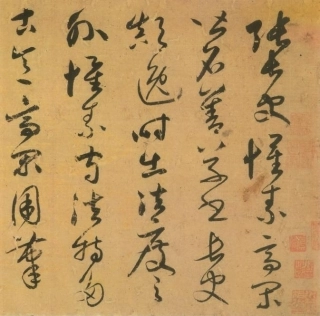 張長史懷素高閑
皆名善草書長史
顛逸時出法度之
外懷素守法特多
古意高閑用筆